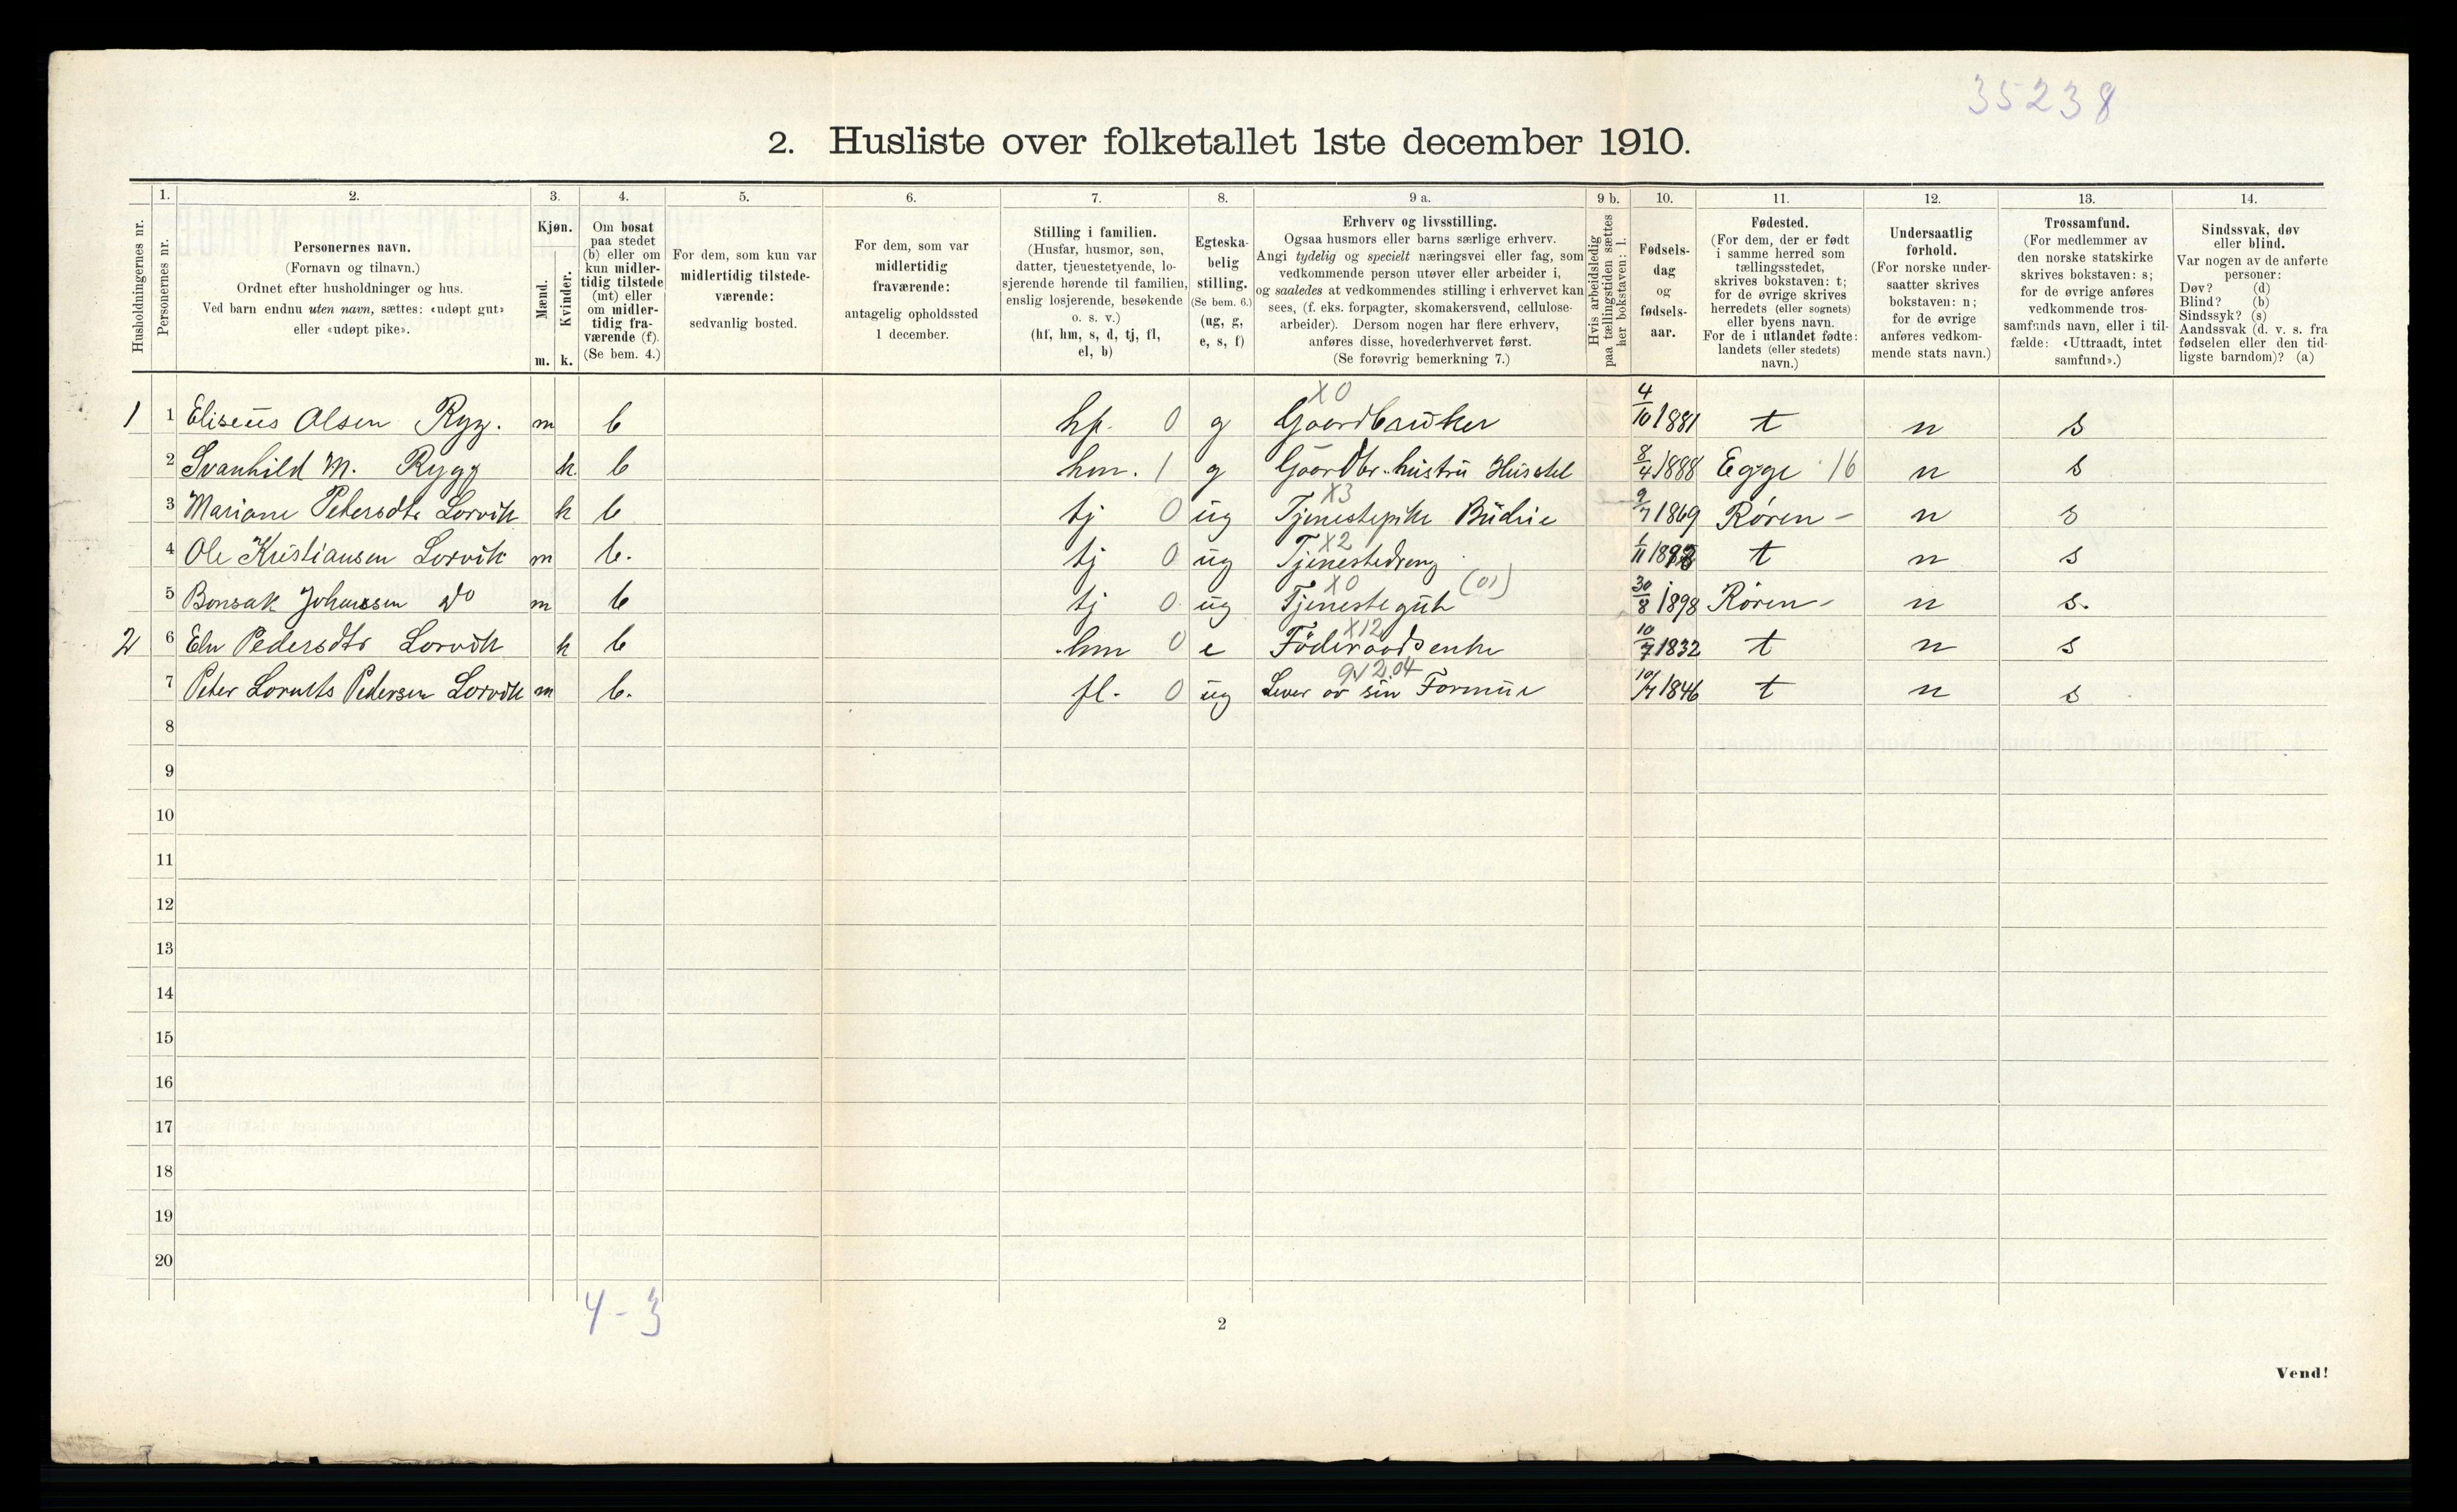 35238
2. Husliste over folketallet 1ste december 1910.
Husholdningernes nr.
1.
Personernes nr.
2.
Personernes navn.
(Fornavn og tilnavn.)
Ordnet efter husholdninger og hus.
Ved barn endnu uten navn, sættes: «udøpt gut»
eller «udøpt pike».
3.
Kjøn.
Mænd.
Kvinder.
m. k.
4.
Om bosat
paa stedet
(b) eller om
kun midler-
tidig tilstede
(mt) eller
om midler-
tidig fra-
værende (f).
(Se bem. 4.)
5.
For dem, som kun var
midlertidig tilstede-
værende:
sedvanlig bosted.
6.
For dem, som var
midlertidig
fraværende:
antagelig opholdssted
1 december.
7.
Stilling i familien.
(Husfar, husmor, søn,
datter, tjenestetyende, lo-
sjerende hørende til familien,
enslig losjerende, besøkende
o. s. v.)
(hf, hm, s, d, tj, fl,
el, b)
8.
Egteska-
belig
stilling.
(Se bem. 6.)
(ug, g,
e, s, f)
9 a.
Erhverv og livsstilling.
Ogsaa husmors eller barns særlige erhverv.
Angi tydelig og specielt næringsvei eller fag, som
vedkommende person utøver eller arbeider i,
og saaledes at vedkommendes stilling i erhvervet kan
sees, (f. eks. forpagter, skomakersvend, cellulose-
arbeider). Dersom nogen har flere erhverv,
anføres disse, hovederhvervet først.
(Se forøvrig bemerkning 7.)
9 b.
Hvis arbeidsledig
paa tællingstiden sættes
her bokstaven: l.
10.
Fødsels-
dag
og
fødsels-
aar.
11.
Fødested.
(For dem, der er født
i samme herred som
tællingsstedet,
skrives bokstaven: t;
for de øvrige skrives
herredets (eller sognets)
eller byens navn.
For de i utlandet fødte:
landets (eller stedets)
navn.)
12.
Undersaatlig
forhold.
(For norske under-
saatter skrives
bokstaven: n;
for de øvrige
anføres vedkom-
mende stats navn.)
13.
Trossamfund.
(For medlemmer av
den norske statskirke
skrives bokstaven: s;
for de øvrige anføres
vedkommende tros-
samfunds navn, eller i til-
fælde: «Uttraadt, intet
samfund».)
14.
Sindssvak, døv
eller blind.
Var nogen av de anførte
personer:
Døv? (d)
Blind? (b)
Sindssyk? (s)
Aandssvak (d. v. s. fra
fødselen eller den tid-
ligste barndom)? (a)
X0
1 1 Eliseus Olsen Rygg. m b hf. 0 g Gaardbruker 4/10 1881 t n s
2 Svanhild M. Rygg k. b hm. 1 g Gaardbr. hustru Husstel 8/4 1888 Egge 16 n s
X3
3 Mariane Petersdtr Lorvik k b tj 0 ug Tjenestepike Budeie 9/7 1869 Røren - n s
X2
4 Ole Kristiansen Lorvik m b. tj 0 ug Tjenestedreng 1/11 t n s
X0 (01)
5 Bonsak Johansen do m b tj 0 ug Tjenestegut 30/8 1898 Røren - n s.
X12
2 6 Eln Pedersdtr Lorvik k b hm 0 e Föderaadsenke 10/7 1832 t n s
9V2.04
7 Peter Pedersen Lorvik m b. fl. 0 ug Lever av sin Formue 10/7 1846 t n s
8
9
10
11
12
13
14
15
16
17
18
19
20
4 - 3
2
Vend!